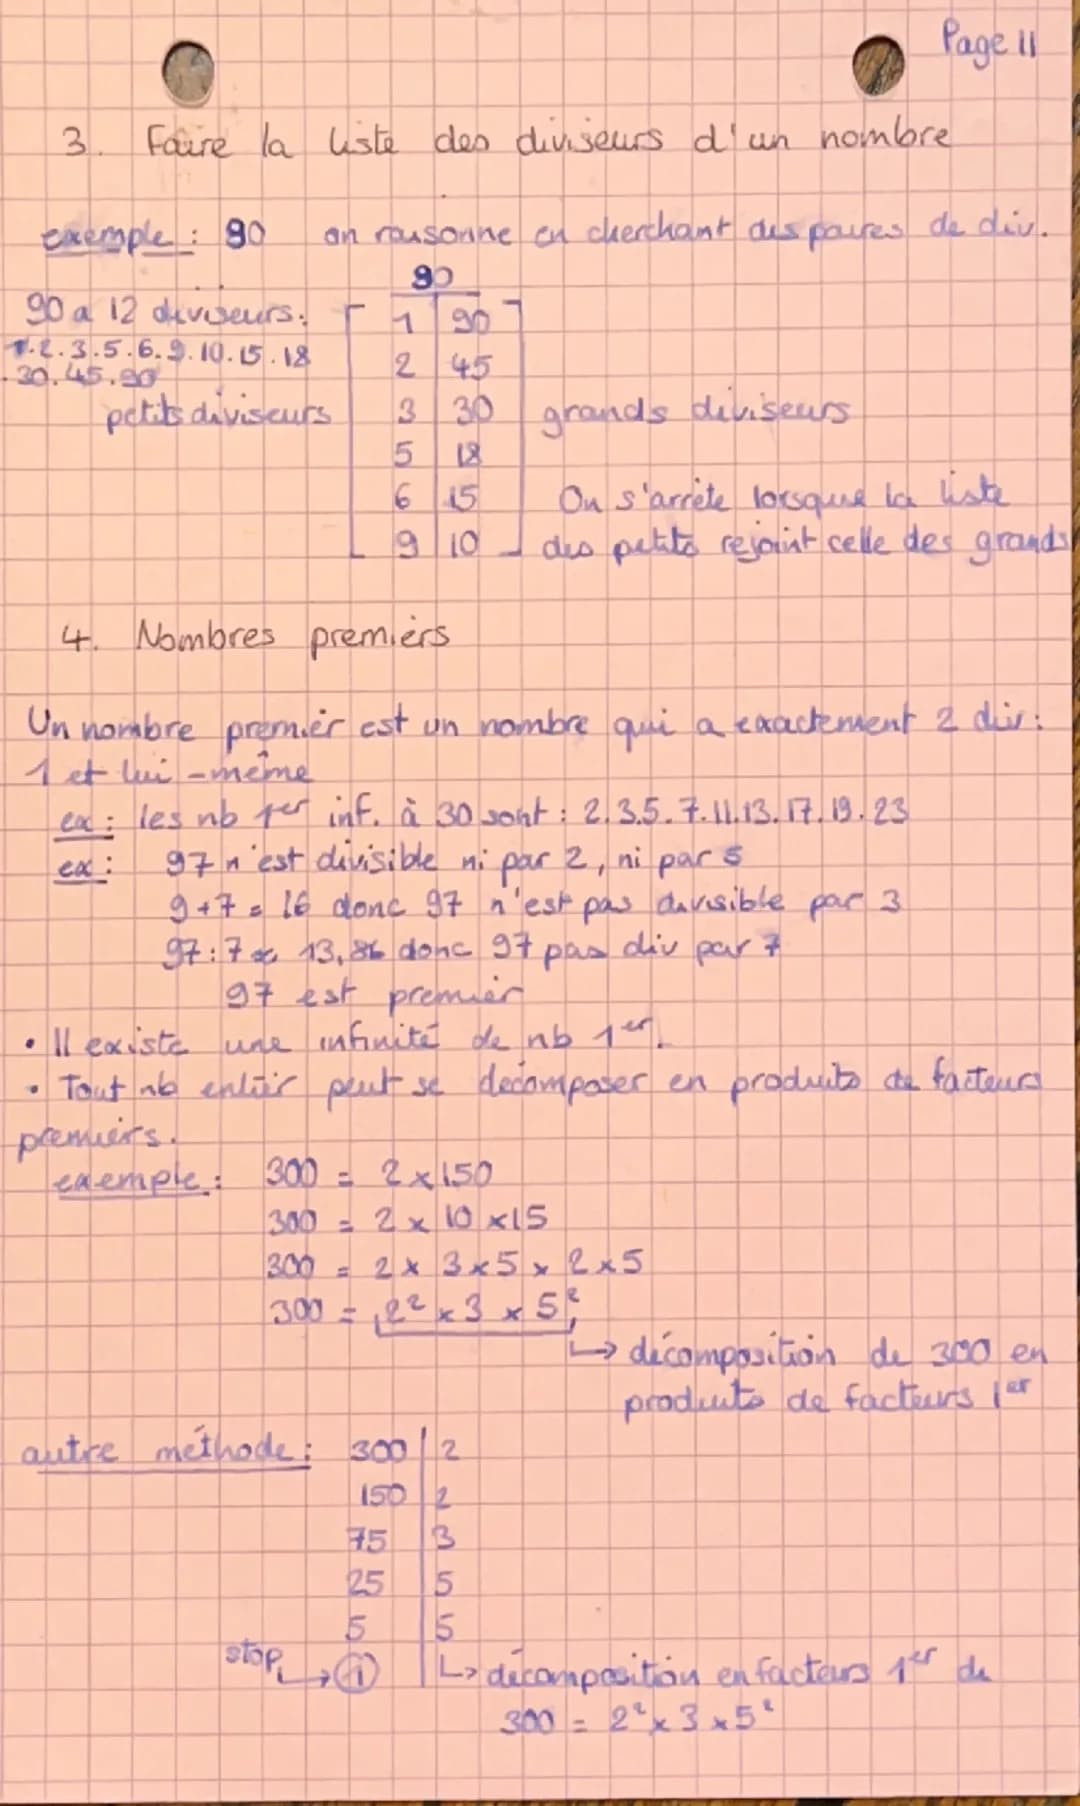 Page 11
3. Faire la liste des diviseurs d'un nombre
exemple : 90 on raisonne en cherchant des paires de div.
90
90 a 12 diviseurs:
1.2.3.5.6.9.10.15.18
.30.45.90
1 | 90
2 | 45
petits diviseurs 3 | 30 grands diviseurs
5 | 18
6 | 15 On s'arrête lorsque la liste
9 | 10 des petits rejoint celle des grands
4. Nombres premiers
Un nombre premier est un nombre qui a exactement 2 div:
1 et lui-même
ex : les nb 1er inf. à 30 sont : 2.3.5.7.11.13.17.19.23
ex : 97 n'est divisible ni par 2, ni par 5
9+7 = 16 donc 97 n'est pas divisible par 3
97:7 ≈ 13,86 donc 97 pas div par 7
97 est premier
• Il existe une infinité de nb 1er.
• Tout nb entier peut se décomposer en produits de facteurs
premiers.
exemple : 300 = 2 x 150
300 = 2 x 10 x 15
300 = 2 x 3 x 5 x 2 x 5
300 = 2² x 3 x 5²
↳ décomposition de 300 en
produits de facteurs 1er
autre méthode : 300 | 2
150 | 2
75 | 3
25 | 5
5 | 5
stop → 1 ↳ décomposition en facteurs 1er de
300 = 2² x 3 x 5²